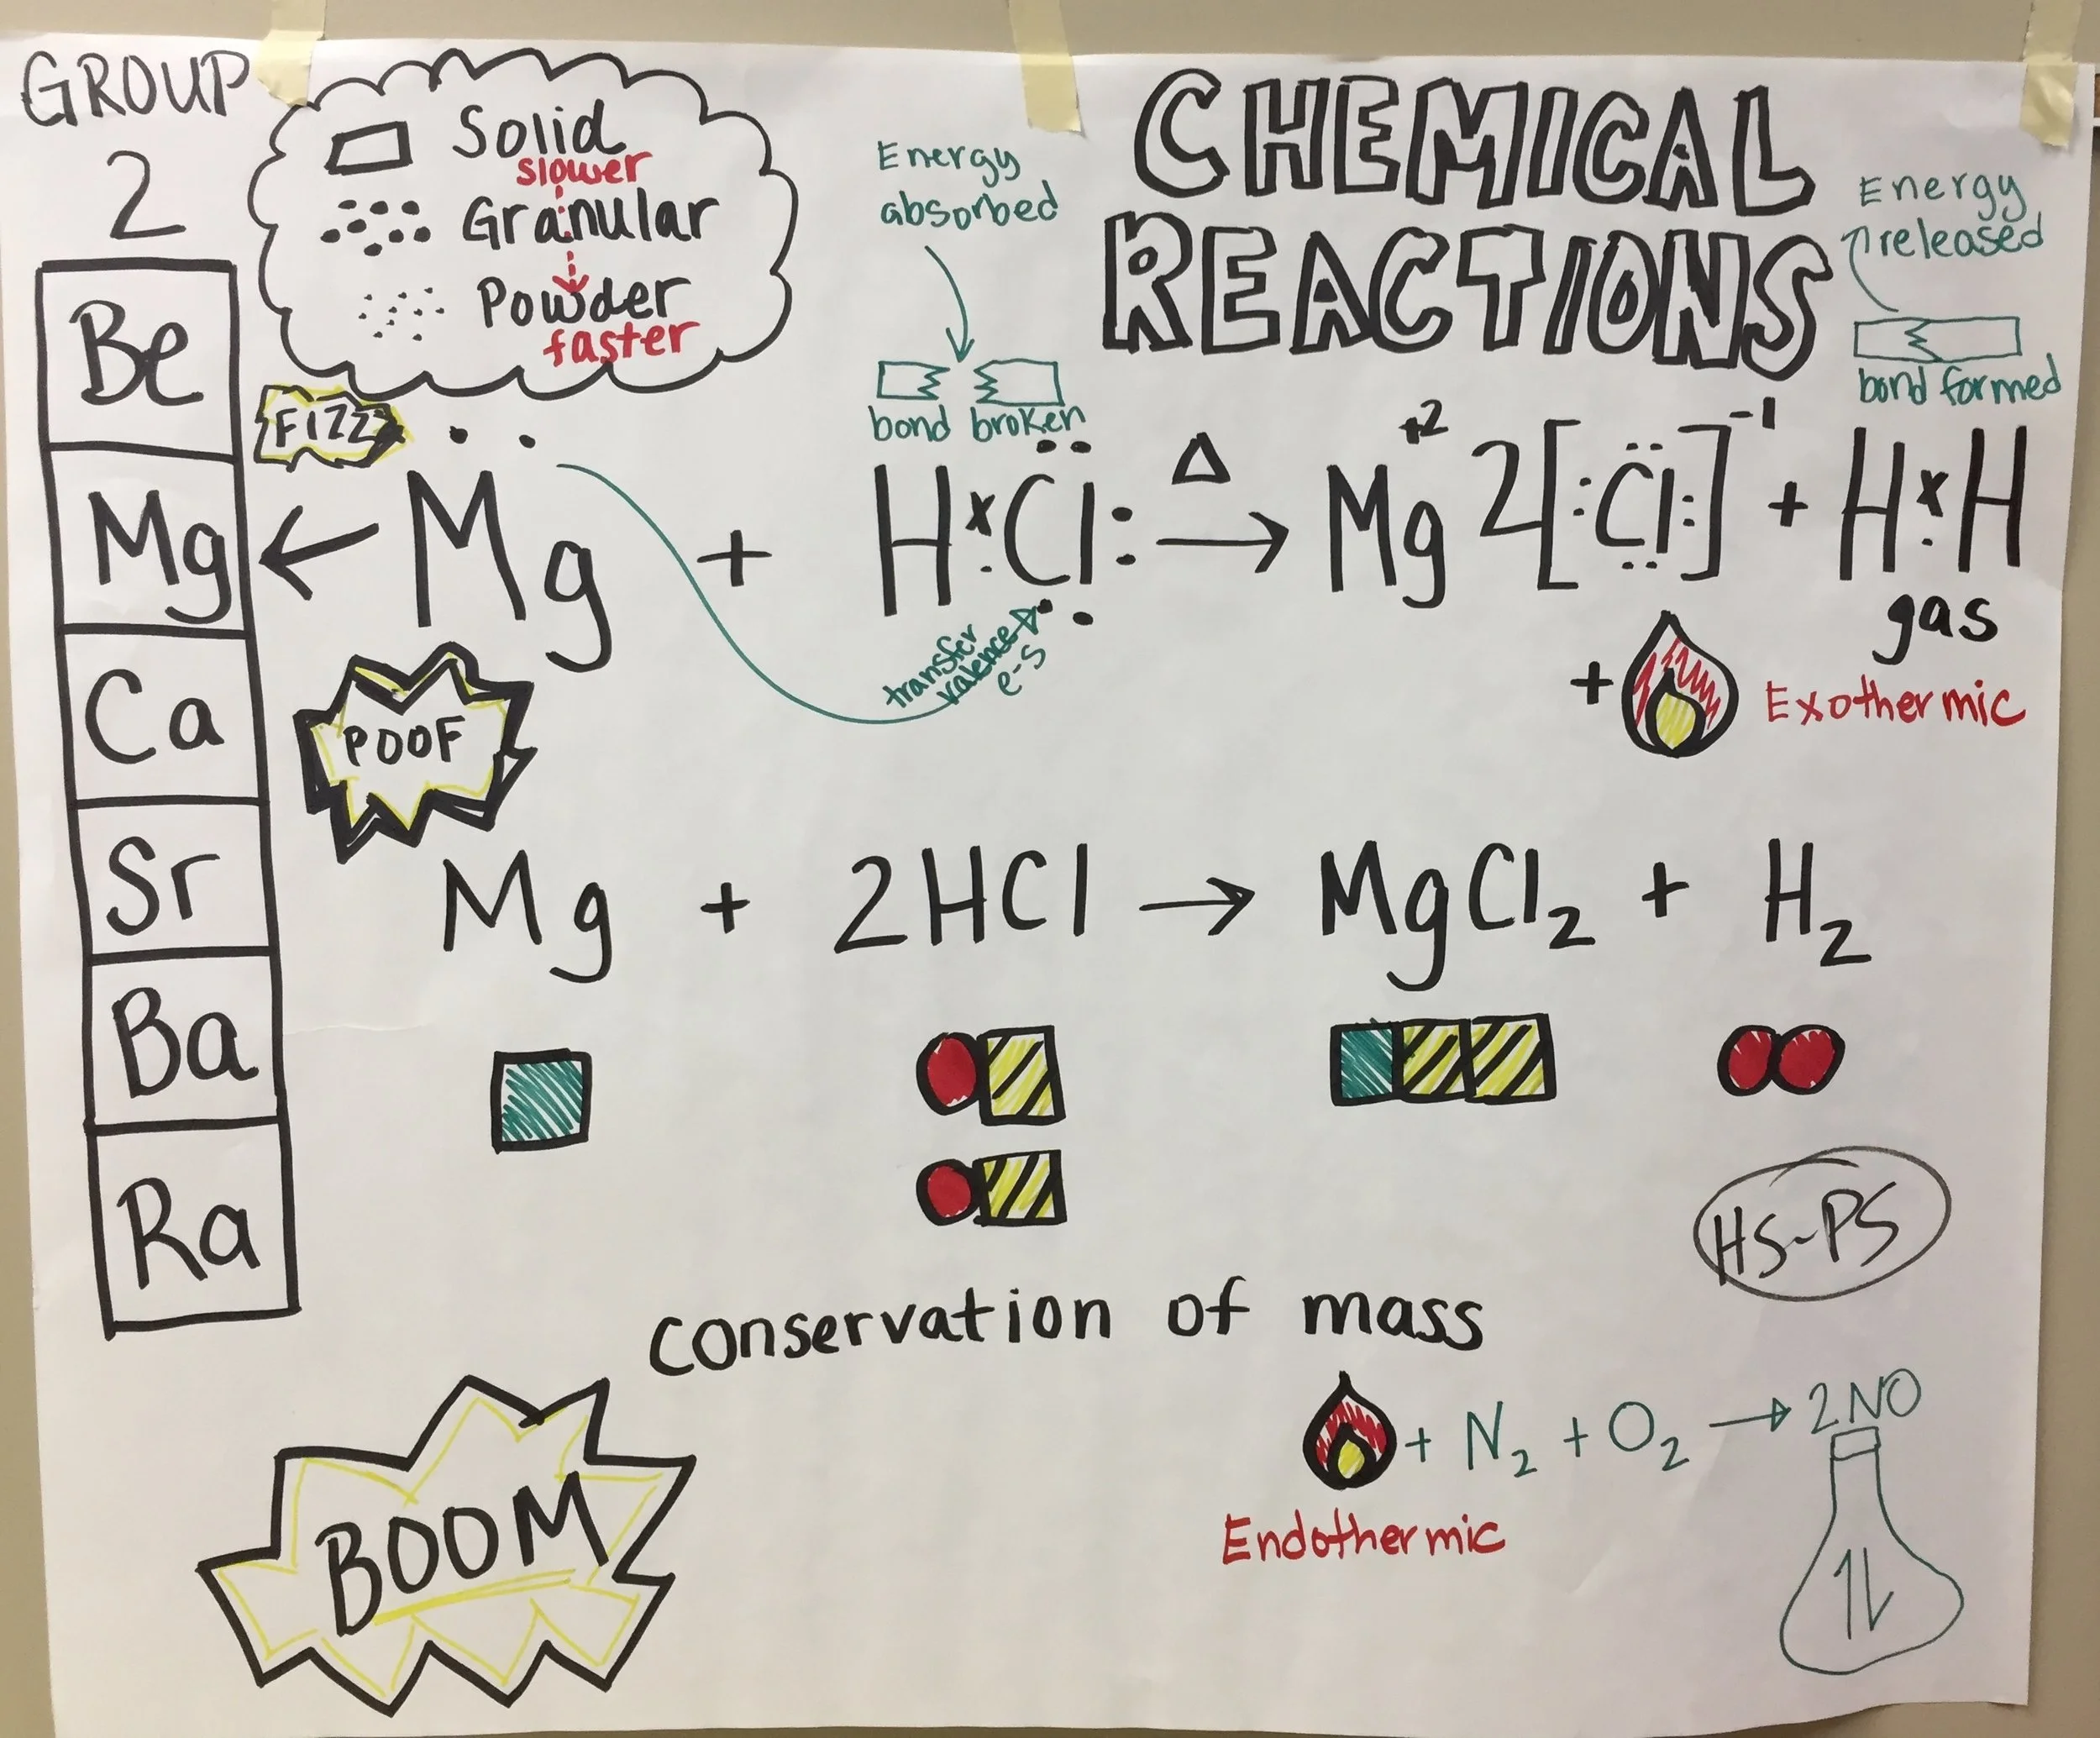 GROUP
2
Be
Mg
Ca
Sr
Ba
Ra
Solid
slower
Granular
Powder
faster
FIZZ
POOF
CHEMICAL
REACTIONS
Energy
absorbed
bond broken
Energy
released
bond formed
Mg + H Cl Δ → Mg +2 2[Cl] -1 + H H
gas
transfer
valence
e-s
+ Exothermic
Mg + 2HCl → MgCl₂ + H₂
HS-PS
conservation of mass
BOOM
+ N₂ + O₂ → 2NO
Endothermic